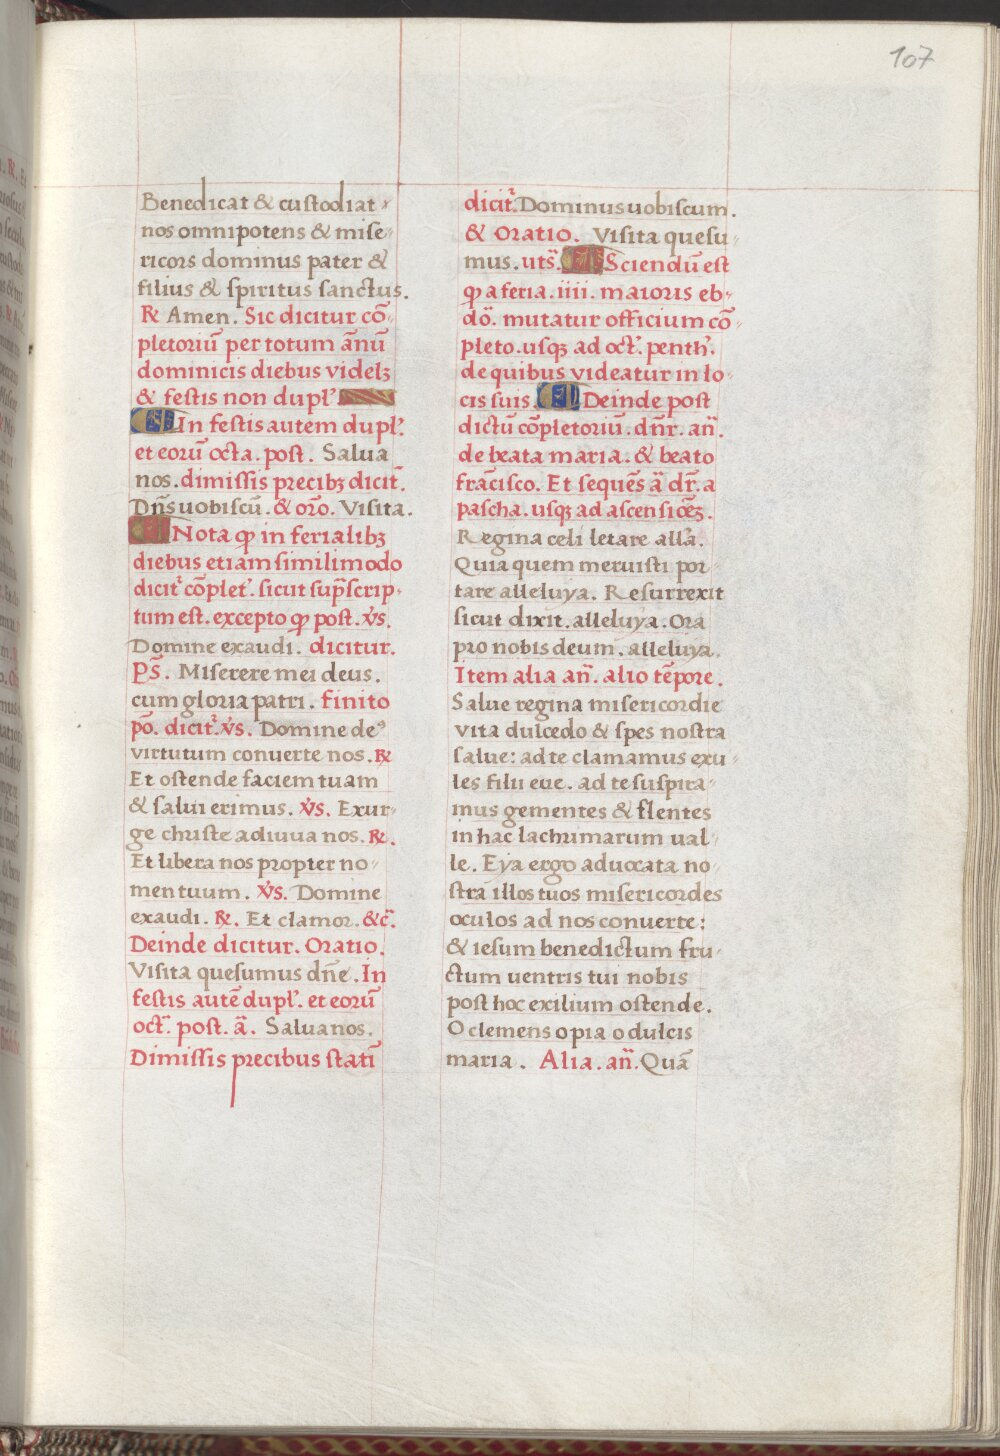 107
Benedicat & custodiat
nos omnipotens & mise
ricors dominus pater &
filius & spiritus sanctus.
℟ Amen. Sic dicitur cō
pletoriū per totum ānū
dominicis diebus videlꝫ
& festis non dupl'.
In festis autem dupl'.
et eorū octa. post. Salua
nos. dimissis precibꝫ dicit᷑.
Dn̄s uobiscū. & or̄o. Visita.
Nota ꝙ in ferialibꝫ
diebus etiam simili modo
dicit᷑ cōplet'. sicut sup̄scrip
tum est. excepto ꝙ post. ℣s.
Domine exaudi. dicitur.
Ps̄. Miserere mei deus.
cum gloria patri. finito
pō. dicit᷑. ℣s. Domine deꝰ
virtutum conuerte nos. ℟
Et ostende faciem tuam
& salui erimus. ℣s. Exur
ge christe adiuua nos. ℟.
Et libera nos propter no
men tuum. ℣s. Domine
exaudi. ℟. Et clamor. &c̄.
Deinde dicitur. Oratio.
Visita quesumus dn̄e. In
festis autē dupl'. et eorū
oct̄. post. ā. Salua nos.
Dimissis precibus statī
dicit᷑. Dominus uobiscum.
& Oratio. Visita quesu
mus. ut s̄. Sciendū est
ꝙ a feria. iiii. maioris eb
dō. mutatur officium cō
pleto. usqꝫ ad oct'. penth'.
de quibus videatur in lo
cis suis. Deinde post
dictū cōpletoriū. dn̄r. an̄.
de beata maria. & beato
frācisco. Et sequēs ā dr̄. a
pascha. usqꝫ ad ascensiōeꝫ.
Regina celi letare all'a.
Quia quem meruisti por
tare alleluya. Resurrexit
sicut dixit. alleluya. Ora
pro nobis deum. alleluya.
Item alia an̄. alio tēpore.
Salue regina misericordie
vita dulcedo & spes nostra
salue: ad te clamamus exu
les filii eue. ad te suspira
mus gementes & flentes
in hac lachrimarum ual
le. Eya ergo aduocata no
stra illos tuos misericordes
oculos ad nos conuerte:
& iesum benedictum fru
ctum uentris tui nobis
post hoc exilium ostende.
O clemens o pia o dulcis
maria. Alia. an̄. Quā